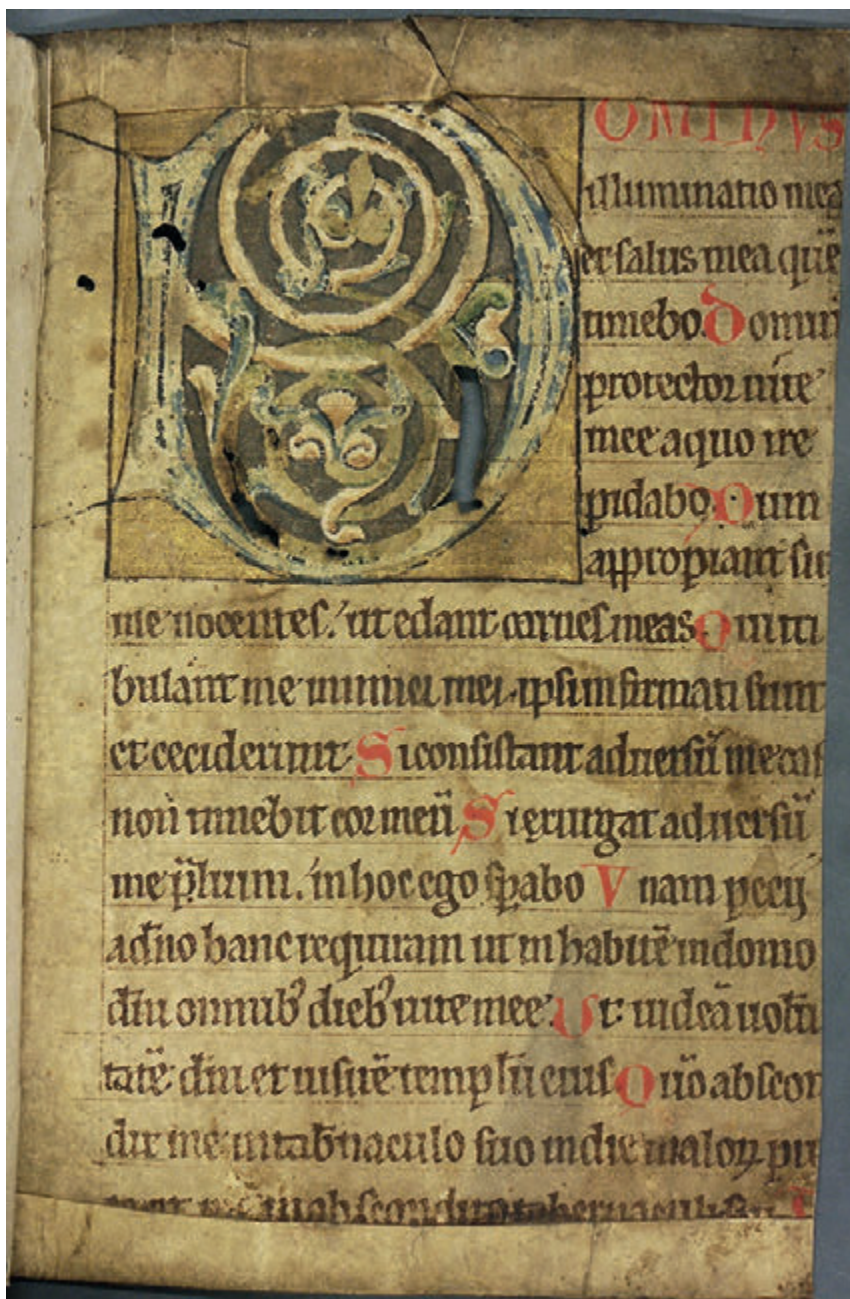 DOMINUS
illuminatio mea
et salus mea quē
timebo. Domin
protector uite
mee a quo tre
pidabo. Dum
appropiant sup
me nocentes. ut edant carnes meas. Qui tri
bulant me inimici mei. ipsi infirmati sunt
et ceciderunt. Si consistant aduersū me cas
non timebit cor meū Si exurgat aduersū
me p̄lium. in hoc ego sp̄abo Vnam pecij
a dn̄o hanc requiram ut inhabitē in domo
dn̄i omnib; dieb; uite mee. Ut uideā uolū
tatē dn̄i et uisitē templū eius Qm̄ abscon
dit me in tab̄naculo suo in die maloꝝ
in abscondito tabernaculi sui